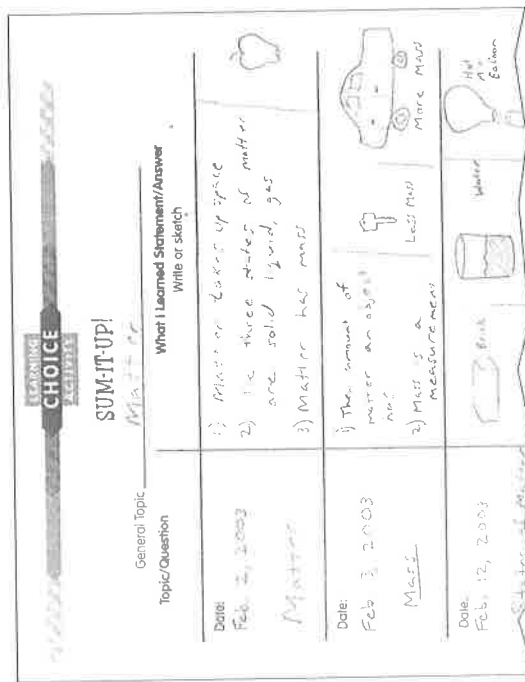 LEARNING
CHOICE
ACTIVITY
SUM-IT-UP!
General Topic Matter
Topic/Question
What I Learned Statement/Answer
Write or sketch
Date:
Feb. 2, 2003
Matter
1) Matter takes up space
2) The three states of matter
are solid liquid, gas
3) Matter has mass
Date:
Feb 3 2003
Mass
1) The amount of
matter an object
has
2) Mass is a
measurement
Less Mass
More Mass
Date:
Feb. 12, 2003
States of Matter
Brick
Water
Hot
Air
Balloon